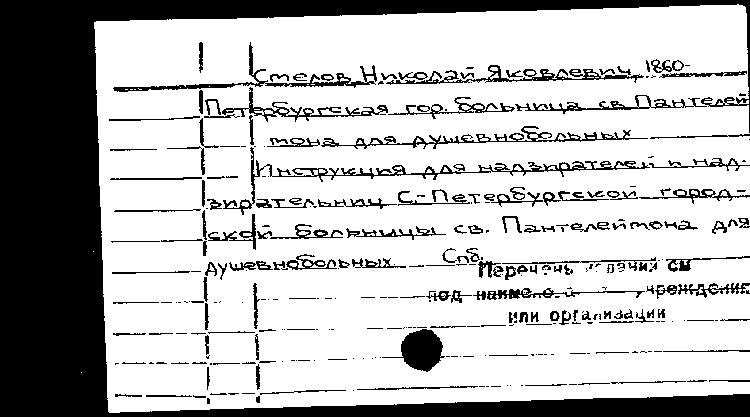 Стелов, Николай Яковлевич, 1860-
Петербургская гор. больница св. Пантелей
мона для душевнобольных
Инструкция для надзирателей и над-
зирательниц С.-Петербургской город-
ской больницы св. Пантелеймона для
душевнобольных Спб.
Перечень изданий см
под наимено учреждения
или организации